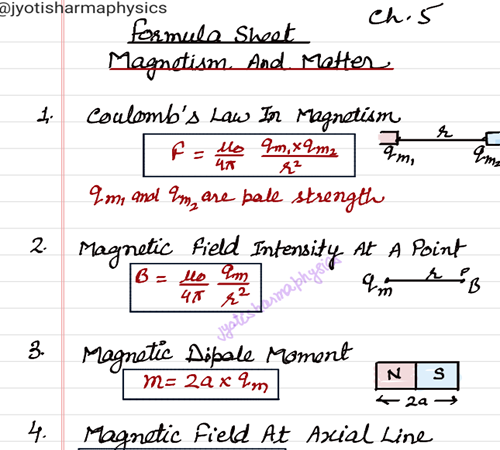 @jyotisharmaphysics
Ch. 5
Formula Sheet
Magnetism And Matter
1. Coulomb's Law In Magnetism
F = μ₀/4π qm₁×qm₂/r²
r
qm₁ qm₂
qm₁ and qm₂ are pole strength
2. Magnetic Field Intensity At A Point
B = μ₀/4π qm/r²
qm r P B
jyotisharmaphysics
3. Magnetic Dipole Moment
m = 2a × qm
N S
2a
4. Magnetic Field At Axial Line